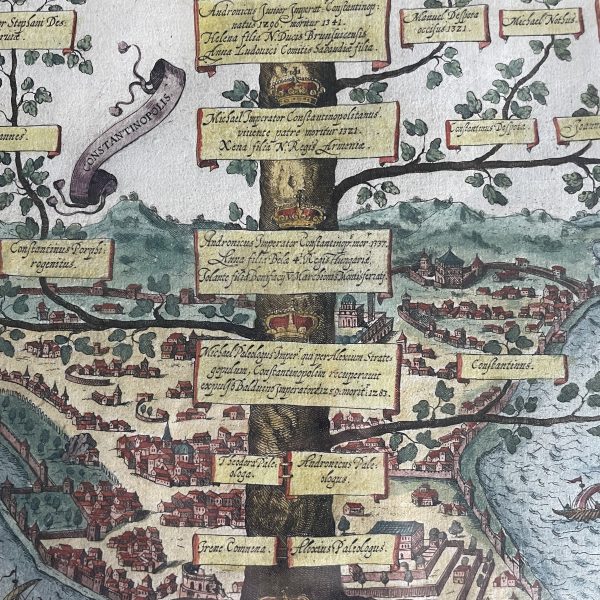 or Stephani Des
Andronicus Iunior Imperat. Constantinop.
natus 1296 mornur 1341.
Helena filia N. Ducis Brunsuicensis,
Anna Ludovici Comitis Sabaudiæ filia.
Manuel Despota
occisus 1321.
Michael Nothus.
CONSTANTINOPOLIS
Michael Imperator Constantinopolitanus.
vivente patre moritur 1321.
Xena filia N. Regis Armeniæ.
Constantinus Despota.
Ioann
annes.
Constantinus Porphi-
rogenitus.
Andronicus Imperator Constantinop. mor. 1337.
Anna filia Bela 4. Regis Hungariæ,
Iolante filia Bonifacij V. Marchionis Montisferrati.
Michael Paleologus Imper. qui per Alexium Strate-
gopulum, Constantinopolim recuperavit
expulso Balduino imperatore 1259. morit. 1283.
Constantinus.
Theodora Pale-
ologa.
Andronicus Pale-
ologus.
Irene Comnena.
Alexius Paleologus.